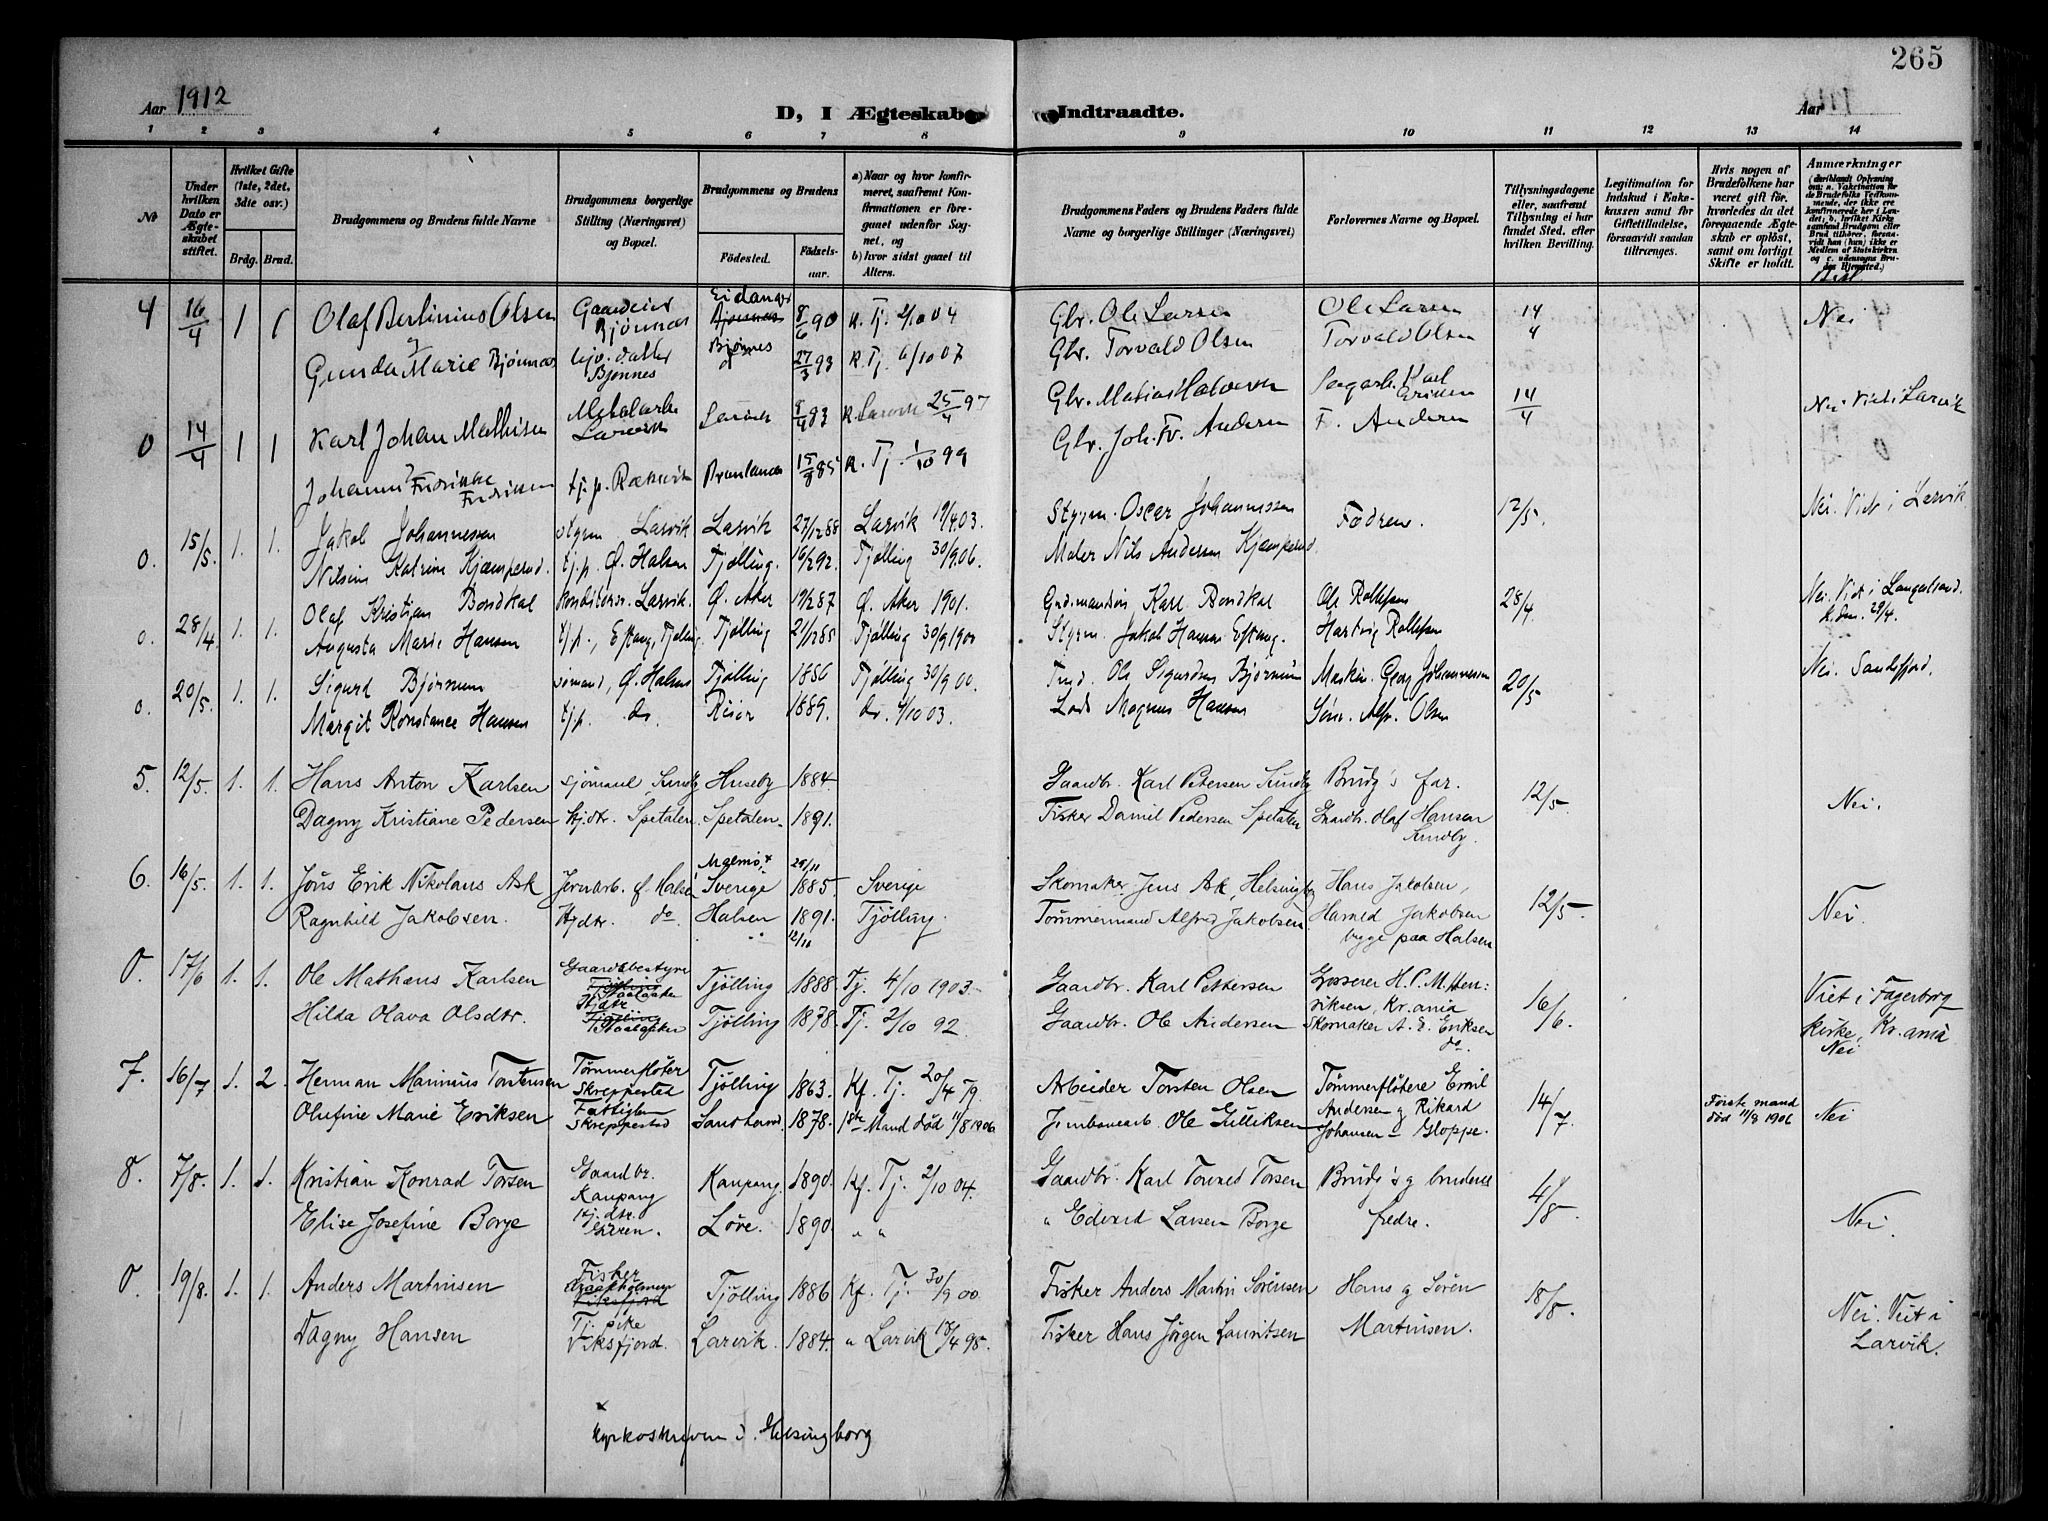 265
Aar 1912
D, I Ægteskab Indtraadte.
Aar
1 2 3 4 5 6 7 8 9 10 11 12 13 14
№
Under hvilken Dato er Ægteskabet stiftet.
Hvilket Gifte (1ste, 2det, 3die osv.)
Brdg. Brud.
Brudgommens og Brudens fulde Navne
Brudgommens borgerlige Stilling (Næringsvei) og Bopæl.
Brudgommens og Brudens
Födested. Födselsaar.
a) Naar og hvor konfirmeret, saafremt Konfirmationen er foregaaet udenfor Sognet, og
b) hvor sidst gaaet til Alters.
Brudgommens Faders og Brudens Faders fulde Navne og borgerlige Stillinger (Næringsvei)
Forlovernes Navne og Bopæl.
Tillysningsdagene eller, saafremt Tillysning ei har fundet Sted, efter hvilken Bevilling.
Legitimation for Indskud i Enkekassen samt for Giftetilladelse, forsaavidt saadan tiltrænges.
Hvis nogen af Brudefolkene har været gift för, hvorledes da det foregaaende Ægteskab er oplöst, samt om lovligt Skifte er holdt.
Anmærkninger
4 16/4 1 1 Olaf Berlinius Olsen Gaardeier Bjønnes Eidanger 8/6 90 K. Tj. 2/10 04 Gbr. Ole Larsen Ole Larsen 14/4 Nei
og
Gunda Marie Bjønnes Bjønnes Bjønnes 27/3 93 K. Tj. 6/10 07 Gbr. Torvald Olsen Torvald Olsen
0 14/4 1 1 Karl Johan Mathisen Larvik Larvik 83 K. Larvik 25/4 97 Gbr. Matias Halvorsen Karl Eriksen 14/4 Nei Viet i Larvik
Johanne Fredrikke Fredriksen tj.p. 15/9 85 K. Tj. 1/10 99 Gbr. Joh. Fr. Andersen F. Andersen
0. 15/5. 1. 1. Jakob Johannessen styrm Larvik Larvik 27/12 88 Larvik 19/4.03. Styrm. Oscar Johannessen Fædrene. 12/5. Nei. Viet i Larvik
Nilsine Katrine Kjæmperud. tj.p. Ø. Halsen Tjølling. 16/2 92. Tjølling 30/9.06. Maler Nils Andersen Kjæmperud.
0. 28/4 1. 1. Olaf Kristian Bondkal Konditorsv. Larvik. Ø. Aker 19/2 87 Ø. Aker 1901. Karl Bondkal Ole Rollefsen 28/4. Nei. Viet i Langestrand. 28/4.
Augusta Marie Hansen tj.p., Eftang, Tjølling. Tjølling 21/12 85 Tjølling 30/9 1900 Styrm. Jakob Hansen Eftang. Hartvig Rollefsen
0. 20/5. 1. 1. Sigurd Bjørnum sømand, Ø. Halsen Tjølling 1886 Tjølling 30/9 00. Ole Sigurdsen Bjørnum Maskin. Georg Johannessen 20/5 Nei. Sandefjord.
Margit Konstance Hansen tj.p. do. Risør 1889. do. 4/10 03. Lods Magnus Hansen Alfr. Olsen
5. 12/5. 1. 1. Hans Anton Karlsen sjömand, Sundby Huseby 1884. Gaardbr. Karl Petersen Sundby Brudg's far. 12/5. Nei.
Dagny Kristiane Pedersen Hjdtr. Spetalen. Spetalen. 1891. Fisker Daniel Pedersen Spetalen Gaardbr. Olaf Hansen Sundby
6. 16/5. 1. 1. Jöns Erik Nikolaus Ask Jernarb. Ø. Halsen Malmö + Sverige 29/11 1885. Sverige Skomaker Jens Ask, Helsingborg Hans Jakobsen, 12/5. Nei.
Ragnhild Jakobsen. Hjdtr. do Halsen 1891. 12/11 Tjölling. Tömmermand Alfred Jakobsen. Harald Jakobsen begge paa Halsen
0. 17/6 1. 1. Ole Mathæus Karlsen Gaardsbestyrer Tjölling 1888. Tj. 4/10 1903. Gaardbr. Karl Pettersen Grosserer H. P. M. Henriksen, Kr.ania 16/6. Viet i Fagerborg kirke, Kr.ania
Hilda Olava Olsdtr. Hjdtr. Tjölling 1878. Tj. 2/10 92. Gaardbr. Ole Andersen Skomaker A. E. Eriksen do. Nei
7. 16/7 1. 2. Herman Marinius Torstensen Tömmerflöter Skreppestad Tjölling 1863. Kf. Tj. 20/4 79. Arbeider Torsten Olsen Tömmerflötere Emil 14/7 Förste mand död 11/8 1906 Nei
Olufine Marie Eriksen Fattiglem Skreppestad Sandherred 1878. 1ste Mand död 11/8 1906 Jernbanearb. Ole Gulliksen Andersen og Rikard Johansen – Gloppe.
8. 7/8. 1. 1. Kristian Konrad Torsen Gaardbr. Kaupang Kaupang. 1890. Kf. Tj. 2/10 04. Gaardbr. Karl Torvald Torsen Brudg's og brudens 4/8. Nei.
Elise Josefine Borge Hj.dtr. Löve. 1890 " " " Edvard Larsen Borge fedre.
0. 19/8. 1. 1. Anders Martinsen Fisker Tjölling 1886 Kf. Tj. 30/9 00. Fisker Anders Martin Sörensen Hans og Sören 18/8. Nei. Viet i Larvik.
Dagny Hansen Tj. pike Viksfjord. Larvik. 1884. " Larvik 18/4 98. Fisker Hans Jörgen Lauritsen Martinsen.
x
kyrkoskriven i Helsingborg